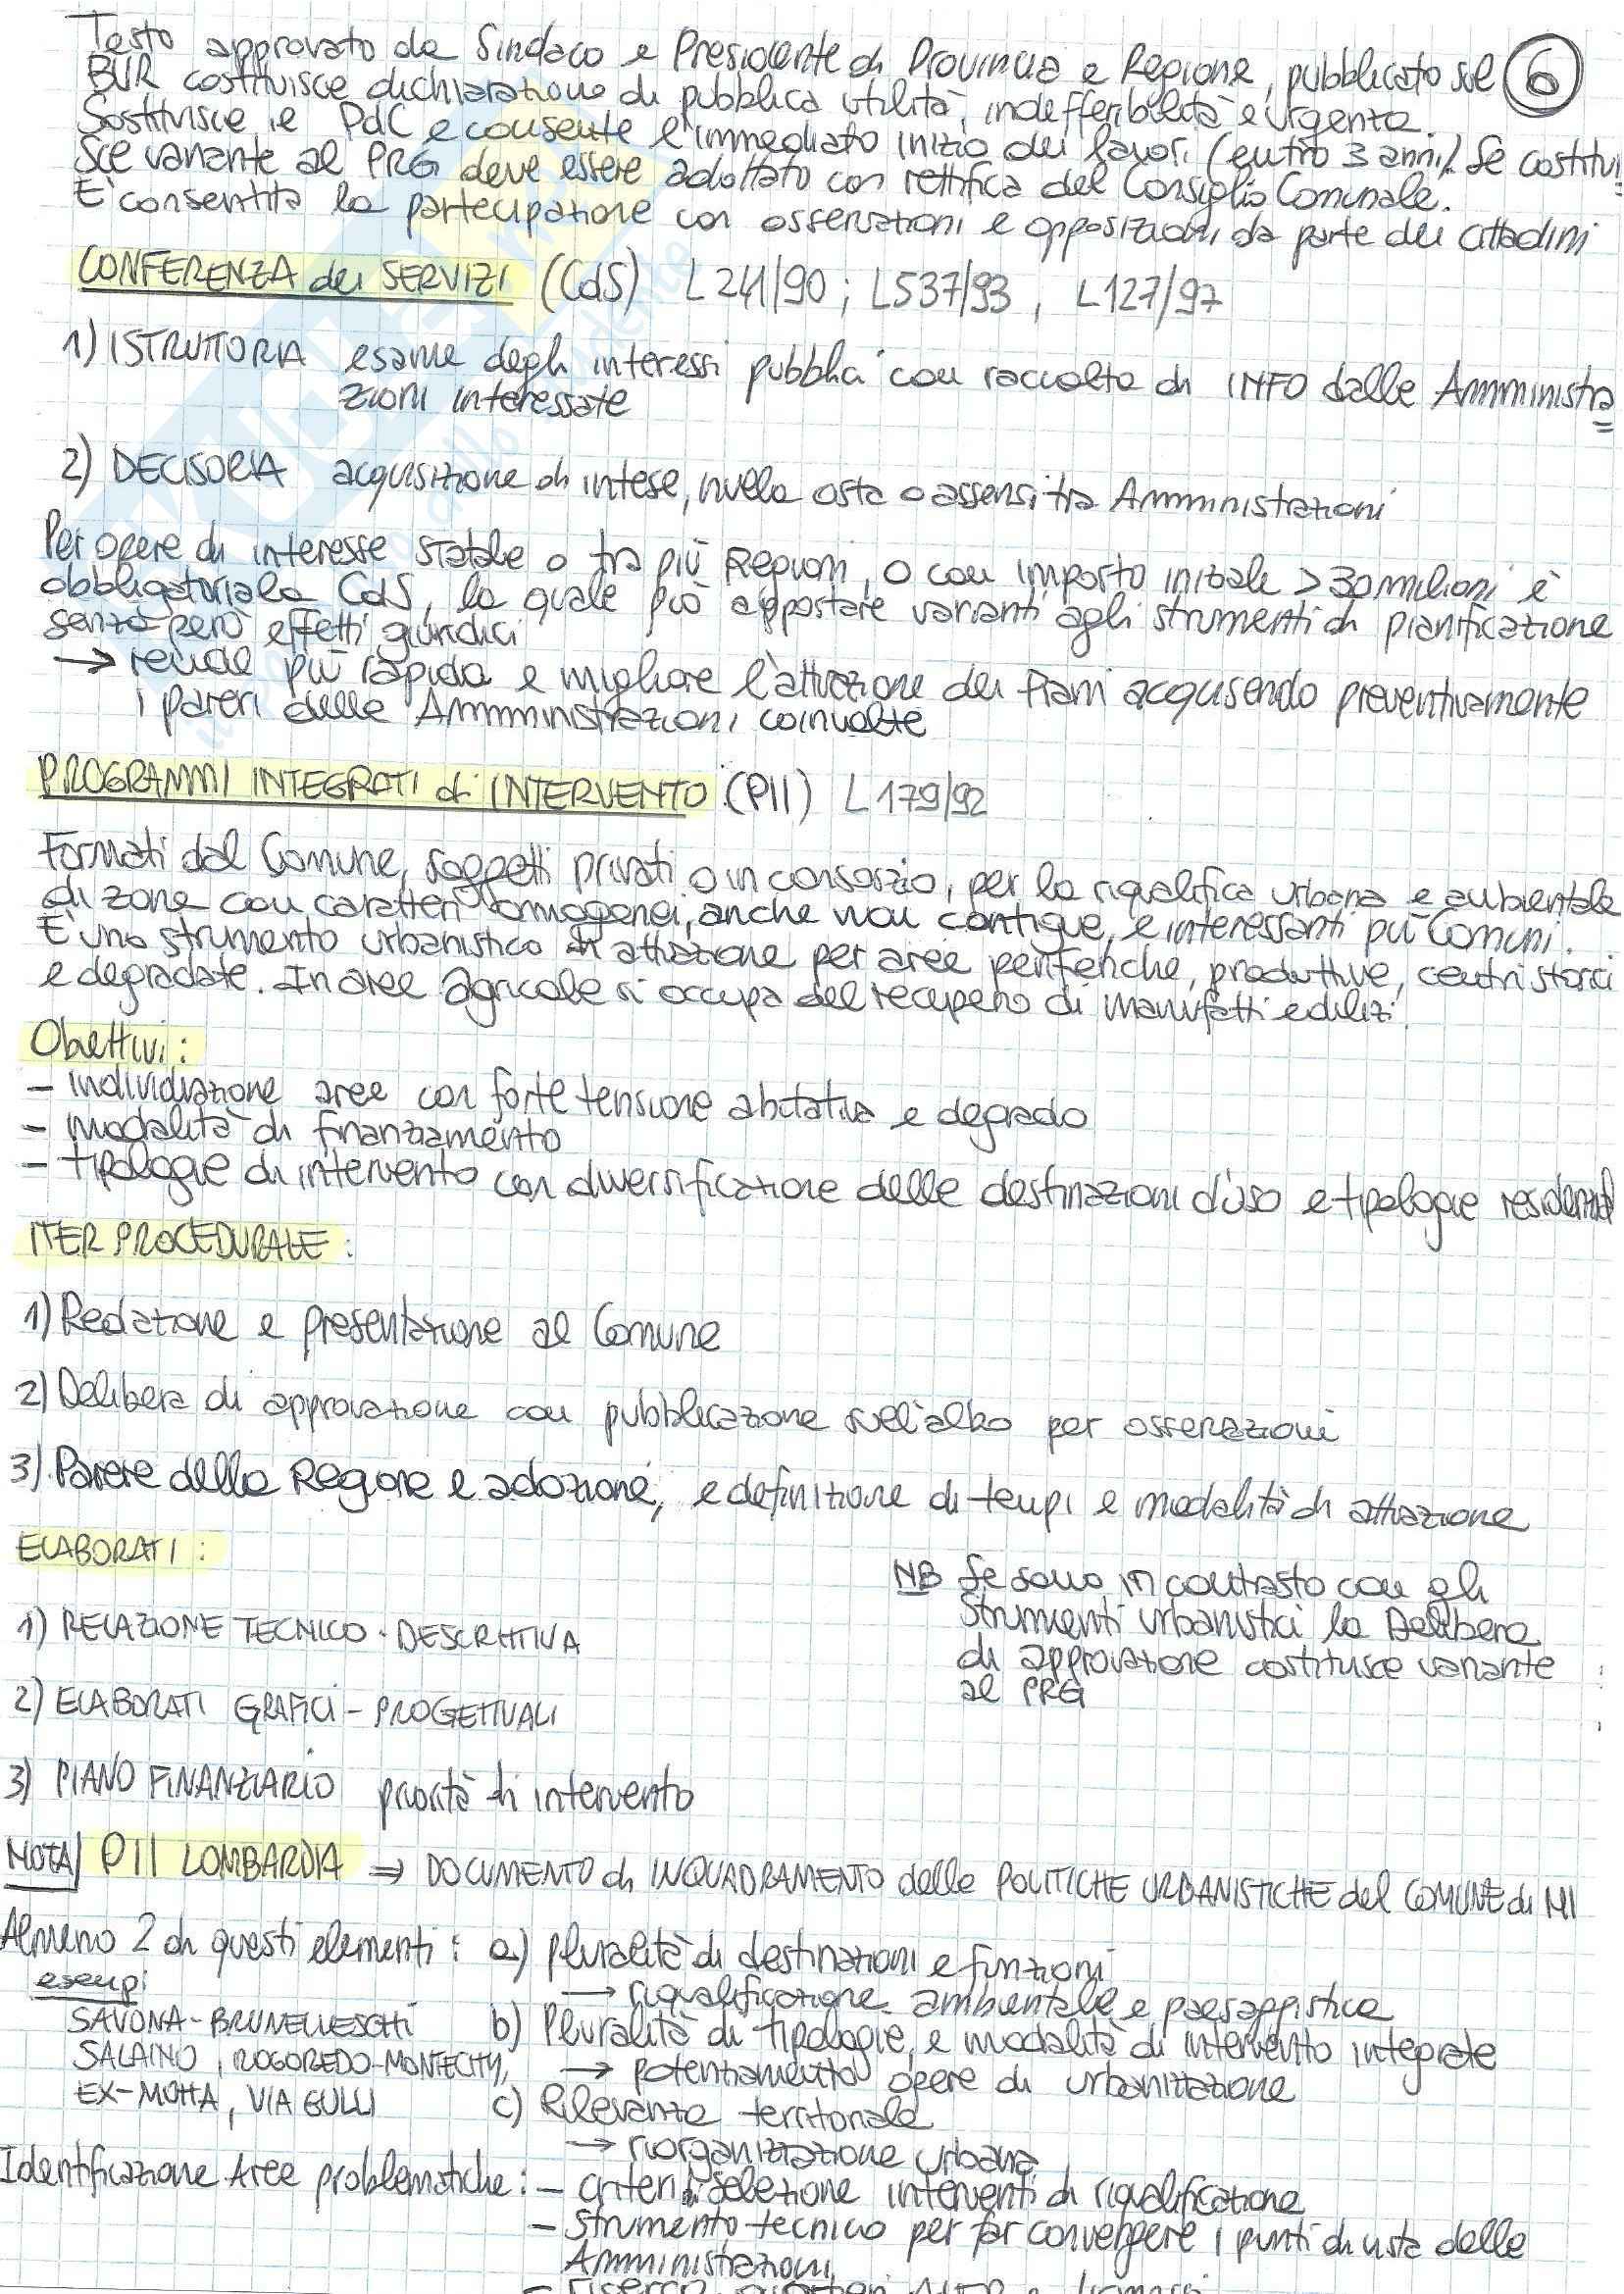 Testo approvato da Sindaco e Presidente di Provincia e Regione, pubblicato sul 6
BUR costituisce dichiarazione di pubblica utilità, indefferibilità e urgenza.
Sostituisce il PdC e consente l'immediato inizio dei lavori (entro 3 anni). Se costitui
sce variante al PRG deve essere adottato con rettifica del Consiglio Comunale.
E' consentita la partecipazione con osservazioni e opposizioni da parte dei cittadini
CONFERENZA dei SERVIZI (CdS) L 241/90 ; L537/93 , L127/97
1) ISTRUTTORIA esame degli interessi pubblici con raccolta di INFO dalle Amministra
zioni interessate
2) DECISORIA acquisizione di intese, nulla osta o assensi tra Amministrazioni
Per opere di interesse statale o tra più Regioni, o con importo iniziale >30 milioni è
obbligatoria la CdS, la quale può appostare varianti agli strumenti di pianificazione
senza però effetti giuridici
→ rende più rapida e migliore l'attuazione dei Piani acquisendo preventivamente
i pareri delle Ammministrazioni coinvolte
PROGRAMMI INTEGRATI di INTERVENTO (PII) L 179/92
Formati dal Comune, soggetti privati o in consorzio, per la riqualifica urbana e ambientale
di zone con caratteri omogenei, anche non contigue, e interessanti più Comuni.
È uno strumento urbanistico di attuazione per aree periferiche, produttive, centri storici
e degradate. In aree agricole si occupa del recupero di manufatti edilizi.
Obiettivi:
- individuazione aree con forte tensione abitativa e degrado
- modalità di finanziamento
- tipologie di intervento con diversificazione delle destinazioni d'uso e tipologie residenziali
ITER PROCEDURALE:
1) Redazione e presentazione al Comune
2) Delibera di approvazione con pubblicazione sull'albo per osservazioni
3) Parere della Regione e adozione, e definizione di tempi e modalità di attuazione
ELABORATI:
NB Se sono in contrasto con gli
strumenti urbanistici la Delibera
di approvazione costituisce variante
al PRG
1) RELAZIONE TECNICO-DESCRITTIVA
2) ELABORATI GRAFICI-PROGETTUALI
3) PIANO FINANZIARIO priorità di intervento
NOTA PII LOMBARDIA ⇒ DOCUMENTO di INQUADRAMENTO delle POLITICHE URBANISTICHE del COMUNE di MI
Almeno 2 di questi elementi: a) pluralità di destinazioni e funzioni
→ riqualificazione ambientale e paesaggistica
esempi
SAVONA-BRUNELLESCHI b) Pluralità di tipologie e modalità di intervento integrate
SALAINO, ROGOREDO-MONTECITY, → potenziamento opere di urbanizzazione
EX-MOTTA, VIA GULLI c) Rilevanza territoriale
→ riorganizzazione urbana
Identificazione Aree problematiche: - criteri di selezione interventi di riqualificazione
- Strumento tecnico per far convergere i punti di vista delle
Amministrazioni